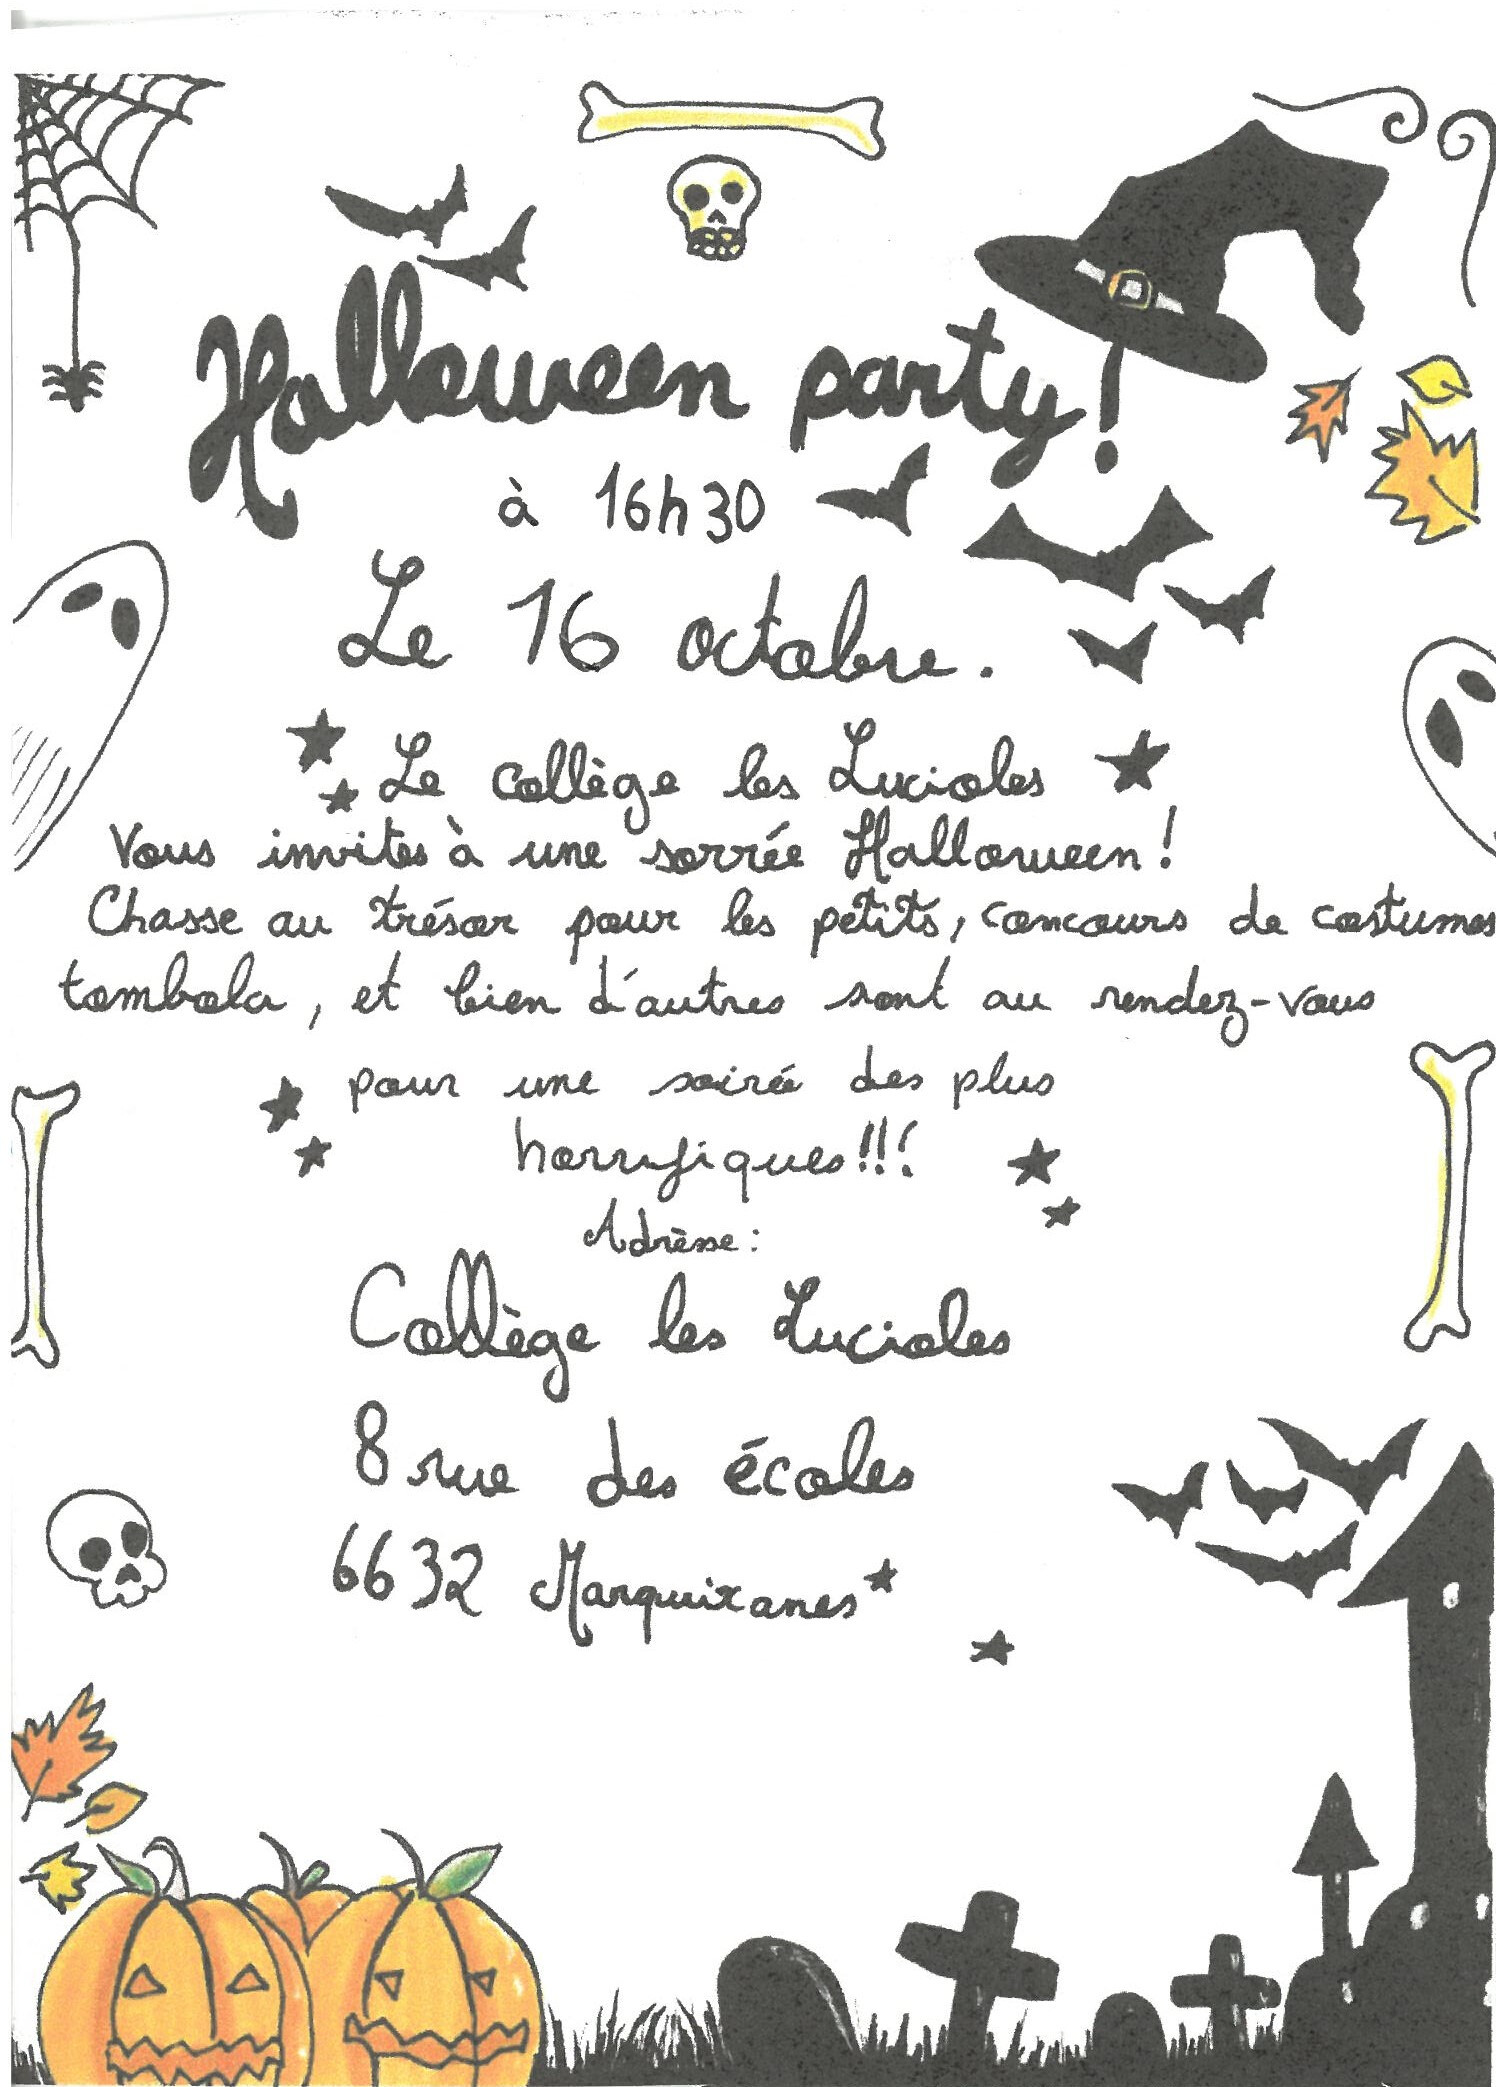 Halloween party!
à 16h30
Le 16 octobre.
Le collège les Lucioles
Vous invites à une sorrée Halloween!
Chasse au trésor pour les petits, concours de costumes
tombola, et bien d'autres sont au rendez-vous
pour une soirée des plus
horrifiques!!!
Adrèsse:
Collège les Lucioles
8 rue des écoles
6632 Marquixanes